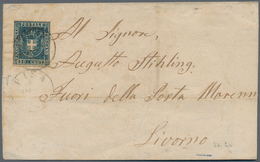 Al Signore,
Augusto Stichling,
Fuori della Porta Maremm
Livorno